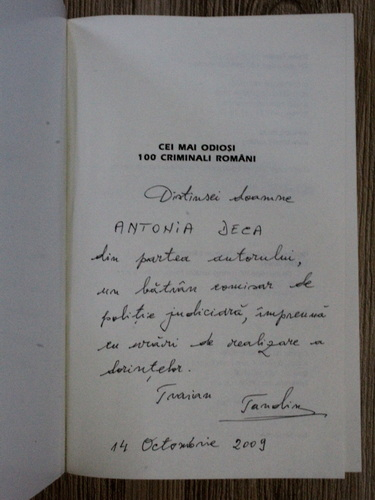 CEI MAI ODIOȘI
100 CRIMINALI ROMÂNI
Distinsei doamne
ANTONIA DECA
din partea autorului,
un bătrân comisar de
poliție judiciară, împreună
cu urări de realizare a
dorințelor.
Traian Tandin
14 Octombrie 2009